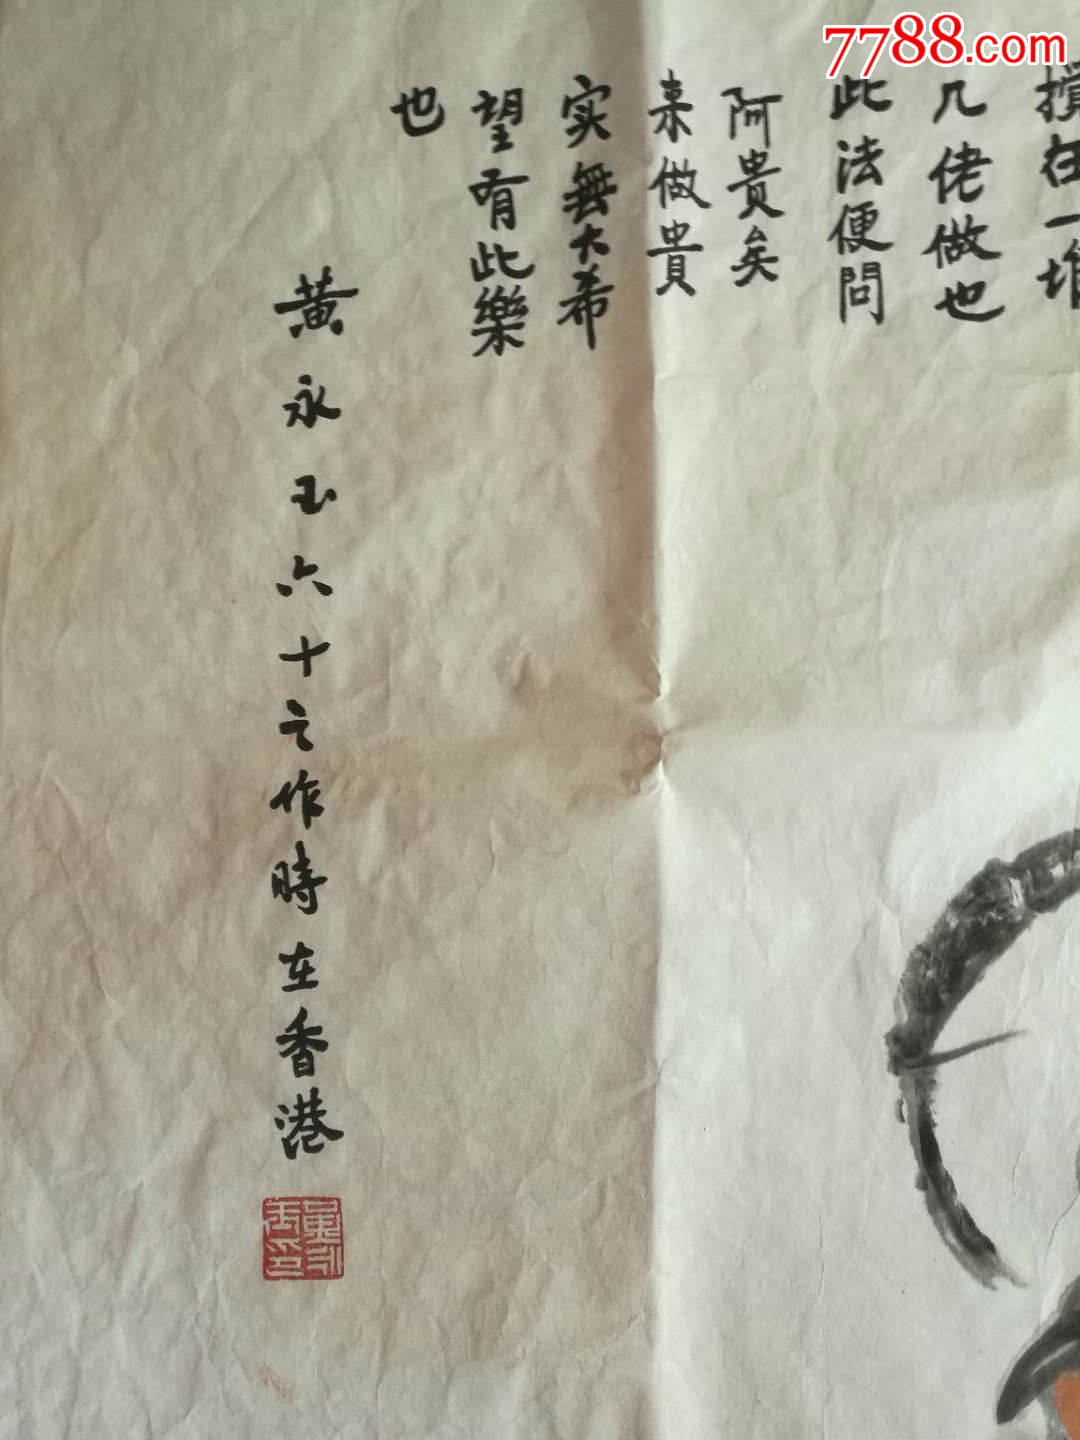 7788.com
攬在一堆
几佬做也
此法便問
阿贵矣
来做貴
实無大希
望有此樂
也
黄永玉六十之作時在香港
黄永玉印